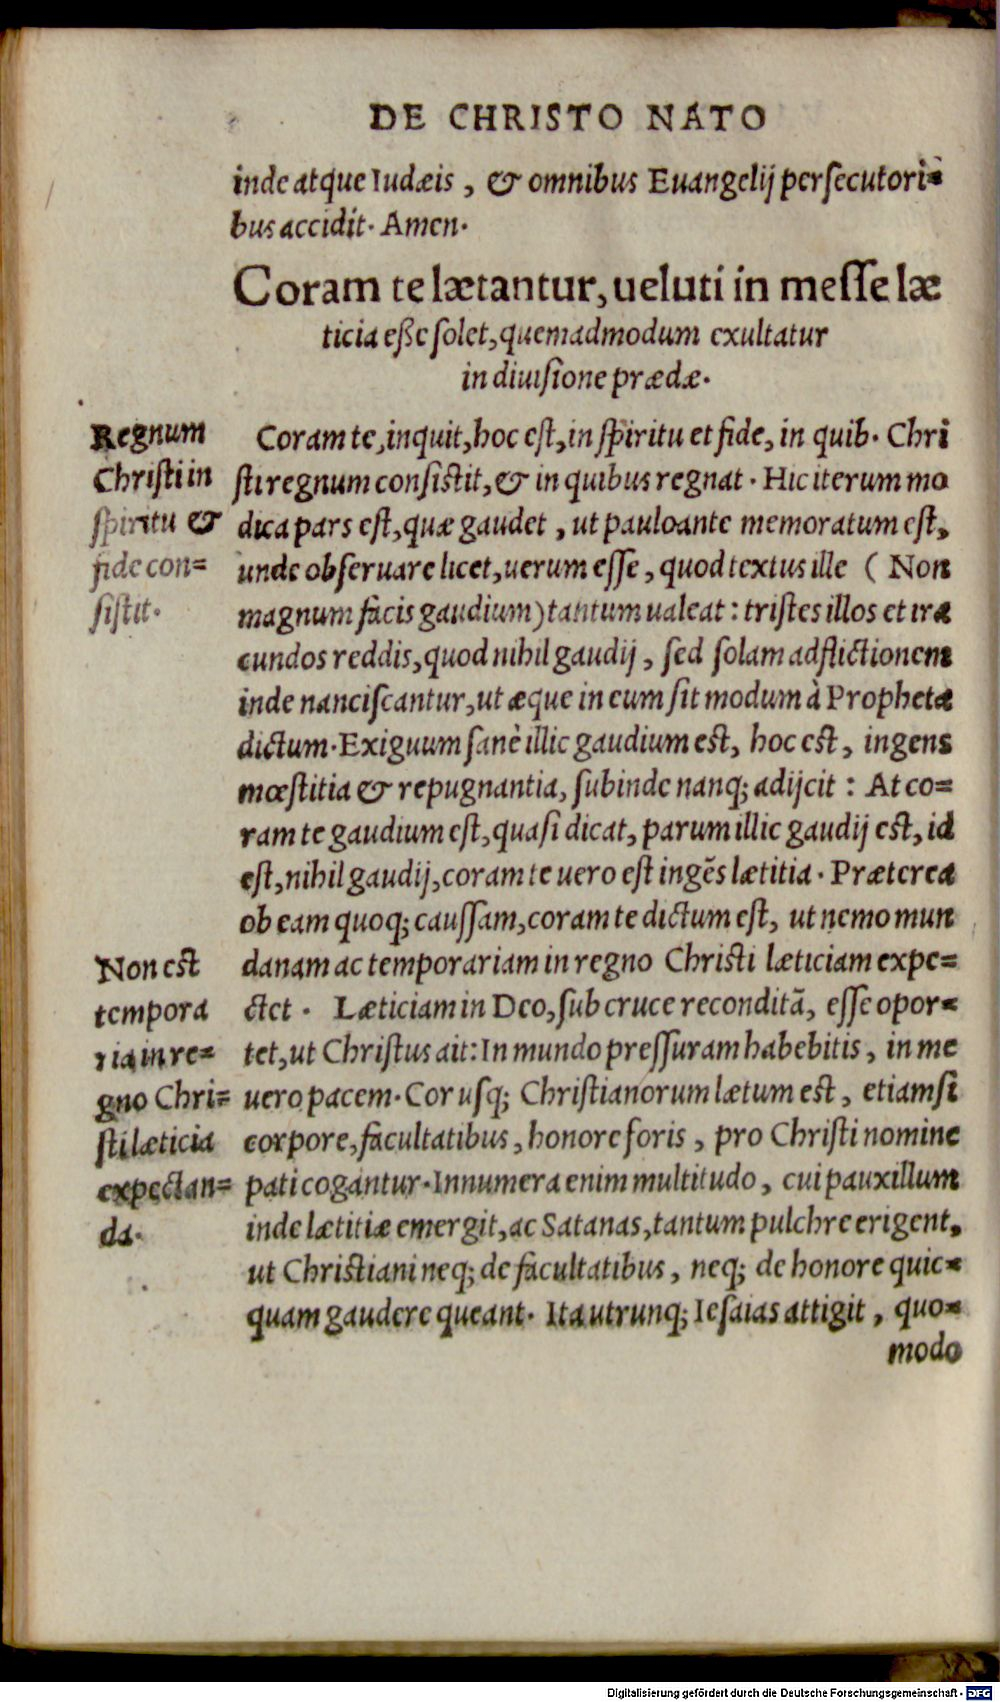 DE CHRISTO NATO
inde atque Iudæis, & omnibus Euangelij persecutori=
bus accidit. Amen.
Coram te lætantur, ueluti in messe læ
ticia eße solet, quemadmodum exultatur
in diuisione prædæ.
Regnum
Christi in
spiritu &
fide con=
sistit.
Coram te, inquit, hoc est, in spiritu et fide, in quib. Chri
sti regnum consistit, & in quibus regnat. Hic iterum mo
dica pars est, quæ gaudet, ut pauloante memoratum est,
unde obseruare licet, uerum esse, quod textus ille (Non
magnum facis gaudium) tantum ualeat: tristes illos et iræ
cundos reddis, quod nihil gaudij, sed solam adflictionem
inde nanciscantur, ut æque in eum sit modum à Propheta
dictum. Exiguum sanè illic gaudium est, hoc est, ingens
mœstitia & repugnantia, subinde nanq; adijcit: At co=
ram te gaudium est, quasi dicat, parum illic gaudij est, id
est, nihil gaudij, coram te uero est ingẽs lætitia. Præterea
ob eam quoq; caussam, coram te dictum est, ut nemo mun
danam ac temporariam in regno Christi læticiam expe=
ctet. Læticiam in Deo, sub cruce reconditã, esse opor=
tet, ut Christus ait: In mundo pressuram habebitis, in me
uero pacem. Cor usq; Christianorum lætum est, etiamsi
corpore, facultatibus, honore foris, pro Christi nomine
pati cogantur. Innumera enim multitudo, cui pauxillum
inde lætitiæ emergit, ac Satanas, tantum pulchre erigent,
ut Christiani neq; de facultatibus, neq; de honore quic=
quam gaudere queant. Ita utrunq; Iesaias attigit, quo=
modo
Non est
tempora
ria in re=
gno Chri=
sti læticia
expectan=
da.
Digitalisierung gefördert durch die Deutsche Forschungsgemeinschaft - DFG